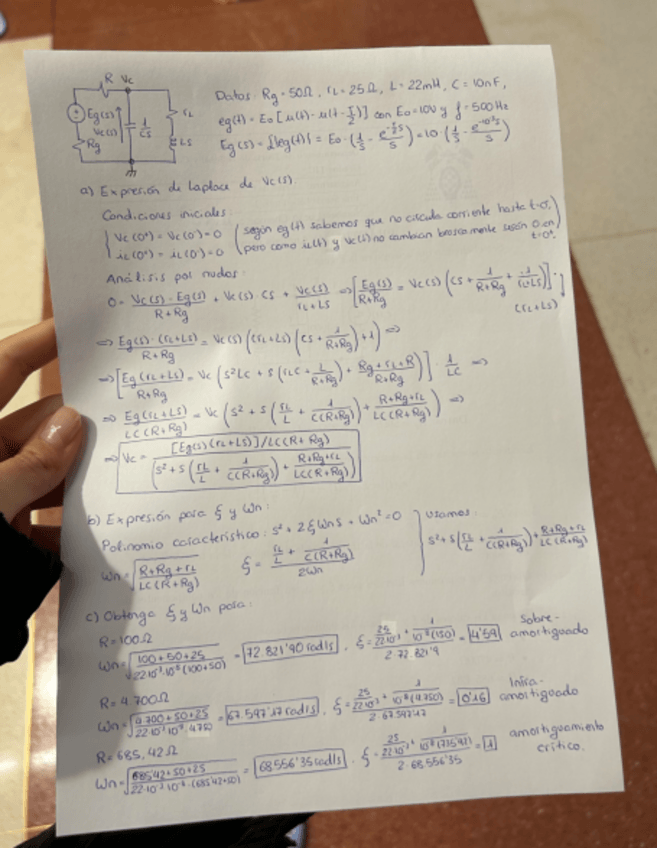 R Vc
Eg(s)
Vc(s)
1/Cs
rL
LS
Rg
Datos: Rg = 50Ω, rL = 25Ω, L = 22mH, C = 10nF,
eg(t) = Eo [u(t) - u(t - T/2)] con Eo = 10V y f = 500Hz
Eg(s) = L{eg(t)} = Eo · (1/s - e^(-T/2 s)/s) = 10 · (1/s - e^(-10^-3 s)/s)
a) Expresión de Laplace de Vc(s).
Condiciones iniciales:
Vc(0+) = Vc(0-) = 0 (según eg(t) sabemos que no circula corriente hasta t=0,
iL(0+) = iL(0-) = 0 pero como iL(t) y Vc(t) no cambian bruscamente serán 0 en t=0+)
Análisis por nudos:
0 = (Vc(s) - Eg(s))/(R+Rg) + Vc(s) · CS + Vc(s)/(rL+LS) => [Eg(s)/(R+Rg) = Vc(s) (CS + 1/(R+Rg) + 1/(rL+LS))] · (rL+LS)
=> Eg(s) · (rL+LS)/(R+Rg) = Vc(s) ((rL+LS) (CS + 1/(R+Rg)) + 1) =>
=> [Eg (rL+LS)/(R+Rg) = Vc (s²LC + s (rLC + L/(R+Rg)) + (Rg+rL+R)/(R+Rg))] · 1/LC =>
=> Eg(rL+LS)/(LC(R+Rg)) = Vc (s² + s (rL/L + 1/(C(R+Rg))) + (R+Rg+rL)/(LC(R+Rg))) =>
=> Vc = [Eg(s)(rL+LS)]/LC(R+Rg) / (s² + s (rL/L + 1/(C(R+Rg))) + (R+Rg+rL)/(LC(R+Rg)))
b) Expresión para ξ y Wn:
Polinomio característico: s² + 2ξWns + Wn² = 0 } usamos:
s² + s(rL/L + 1/(C(R+Rg))) + (R+Rg+rL)/(LC(R+Rg))
Wn = √((R+Rg+rL)/(LC(R+Rg))) ξ = (rL/L + 1/(C(R+Rg)))/2Wn
c) Obtenga ξ y Wn para:
R = 100Ω
Wn = √((100+50+25)/(22·10^-3·10^-8(100+50))) = 72.821'90 rad/s. ξ = (25/(22·10^-3) + 1/(10^-8(150)))/(2·72.821'9) = 4'59 Sobre-amortiguado
R = 4.700Ω
Wn = √((4.700+50+25)/(22·10^-3·10^-8·4750)) = 67.597'17 rad/s. ξ = (25/(22·10^-3) + 1/(10^-8(4.750)))/(2·67.597'17) = 0'16 Infra-amortiguado
R = 685,42Ω
Wn = √((685'42+50+25)/(22·10^-3·10^-8·(685'42+50))) = 68.556'35 rad/s. ξ = (25/(22·10^-3) + 1/(10^-8(735'42)))/(2·68.556'35) = 1 amortiguamiento crítico.